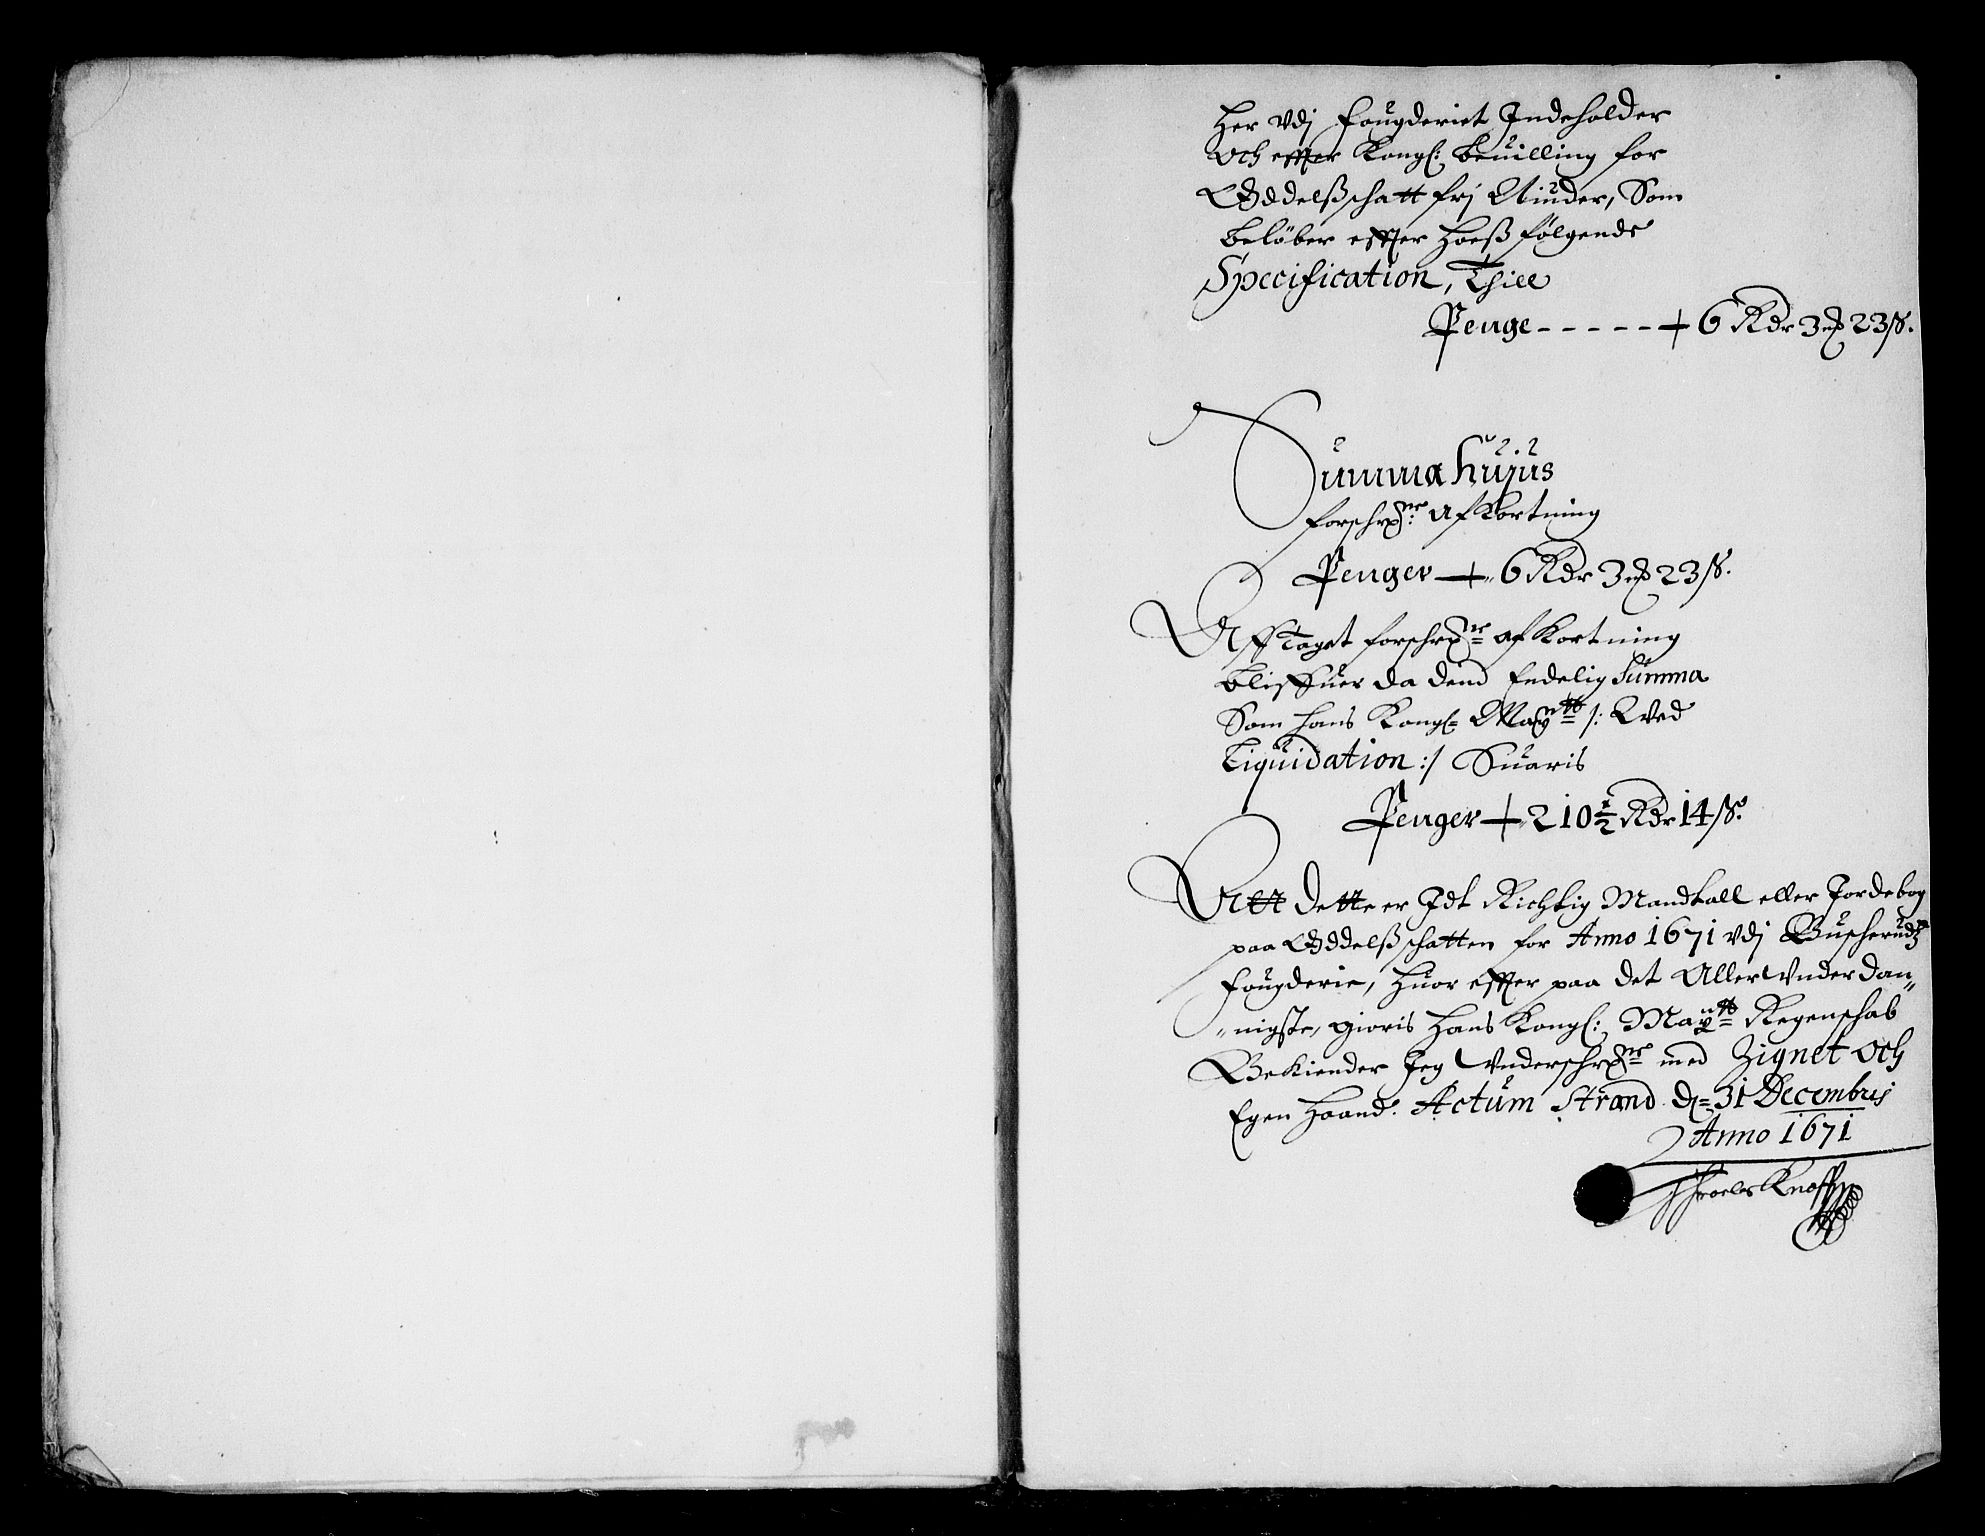 Her vdj fougderiet Indeholder
Och effter Kongl: beuilling for
Oddelßschatt frj Niuder, Som
beløber effter hoeß følgende
Specification, Thill
Penge - - - - - + 6 Rdr 3 mȥ 23 ß.
Summa hujus
forschr:ne af Kortning
Penger + 6 Rdr 3 mȥ 23 ß.
Aff Taget forschr:ne af Kortning
bliffuer da dend Endelig Summa
Som hans Kongl: May:tt /: Wed
Liquidation :/ Suaris
Penger + 210½ Rdr 14 ß.
Att dette er Idt Richtig Mandtall eller Jordebog
paa Oddelßschatten for Anno 1671 vdj Buscherudtz
fougderie, huor effter paa det Aller Vnderdan„
„nigste, giøris Hans Kongl: May:tt Regenschab
Bekiender Jeg Vnderschr:ne med Zignet Och
Egen Haand. Actum Strand d= 31 Decembris
Anno 1671
Throels Knoff